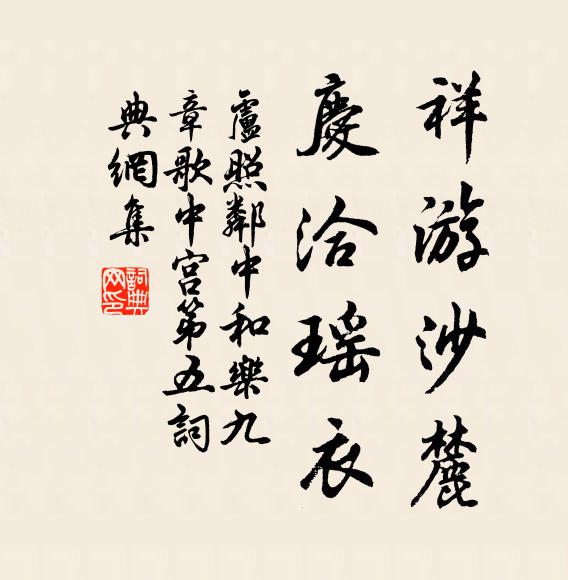 祥游沙麓
慶洽瑤衣
盧照鄰中和樂九
章歌中宮第五詞
典網集
詞典网印